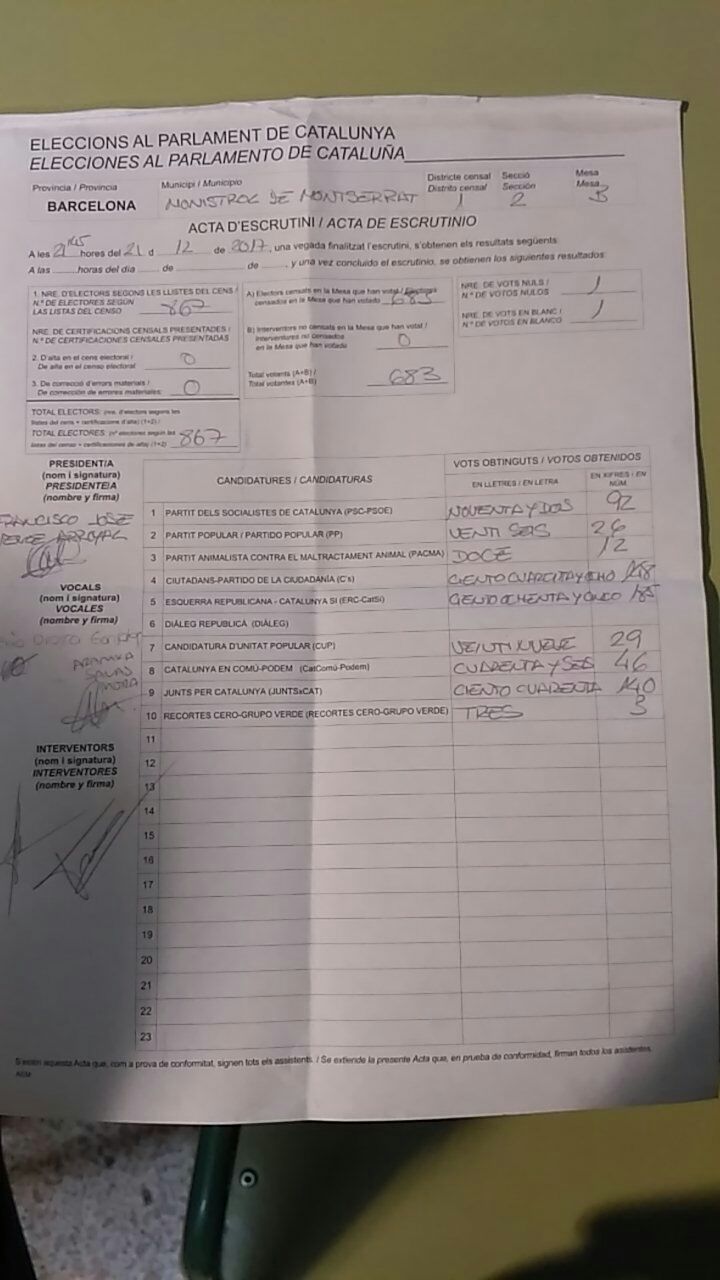 ELECCIONS AL PARLAMENT DE CATALUNYA
ELECCIONES AL PARLAMENTO DE CATALUÑA
Provincia / Provincia
BARCELONA
Municipi / Municipio
MONISTROL DE MONTSERRAT
Districte censal
Distrito censal
1
Secció
Sección
2
Mesa
Mesa
B
ACTA D'ESCRUTINI / ACTA DE ESCRUTINIO
A les 21:45 hores del 21 d 12 de 2017, una vegada finalitzat l'escrutini, s'obtenen els resultats següents:
A las ......horas del día ...... de ...... de ......, y una vez concluido el escrutinio, se obtienen los siguientes resultados:
1. NRE. D'ELECTORS SEGONS LES LLISTES DEL CENS /
N.º DE ELECTORES SEGÚN
LAS LISTAS DEL CENSO 867
NRE. DE CERTIFICACIONS CENSALS PRESENTADES /
N.º DE CERTIFICACIONES CENSALES PRESENTADAS
2. D'alta en el cens electoral /
De alta en el censo electoral 0
3. De correcció d'errors materials /
De corrección de errores materiales: 0
TOTAL ELECTORS: (nre. d'electors segons les
llistes del cens + certificacions d'alta) (1+2) /
TOTAL ELECTORES: (nº electores según las
listas del censo + certificaciones de alta) (1+2) 867
A) Electors censats en la Mesa que han votat / Electores
censados en la Mesa que han votado 683
B) Interventors no censats en la Mesa que han votat /
Interventores no censados
en la Mesa que han votado 0
Total votants (A+B) /
Total votantes (A+B) 683
NRE. DE VOTS NULS /
N.º DE VOTOS NULOS 1
NRE. DE VOTS EN BLANC /
N.º DE VOTOS EN BLANCO 1
PRESIDENT/A
(nom i signatura)
PRESIDENTE/A
(nombre y firma)
FRANCISCO JOSE
VOCALS
(nom i signatura)
VOCALES
(nombre y firma)
SALAS
INTERVENTORS
(nom i signatura)
INTERVENTORES
(nombre y firma)
CANDIDATURES / CANDIDATURAS
VOTS OBTINGUTS / VOTOS OBTENIDOS
EN LLETRES / EN LETRA
EN XIFRES / EN NÚM.
1 PARTIT DELS SOCIALISTES DE CATALUNYA (PSC-PSOE) NOVENTA Y DOS 92
2 PARTIT POPULAR / PARTIDO POPULAR (PP) VENTI SEIS 26
3 PARTIT ANIMALISTA CONTRA EL MALTRACTAMENT ANIMAL (PACMA) DOCE 12
4 CIUTADANS-PARTIDO DE LA CIUDADANÍA (C's) CIENTO CUARENTA Y OCHO 148
5 ESQUERRA REPUBLICANA - CATALUNYA SÍ (ERC-CatSí) CIENTO OCHENTA Y CINCO 185
6 DIÀLEG REPUBLICÀ (DIÀLEG)
7 CANDIDATURA D'UNITAT POPULAR (CUP) VEINTINUEVE 29
8 CATALUNYA EN COMÚ-PODEM (CatComú-Podem) CUARENTA Y SEIS 46
9 JUNTS PER CATALUNYA (JUNTSxCAT) CIENTO CUARENTA 140
10 RECORTES CERO-GRUPO VERDE (RECORTES CERO-GRUPO VERDE) TRES 3
11
12
13
14
15
16
17
18
19
20
21
22
23
S'estén aquesta Acta que, com a prova de conformitat, signen tots els assistents. / Se extiende la presente Acta que, en prueba de conformidad, firman todos los asistentes.